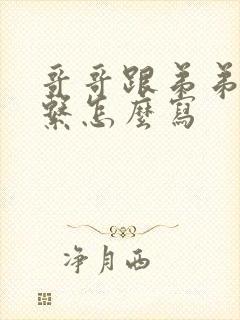 哥哥跟弟弟
繫怎麼寫
净月西